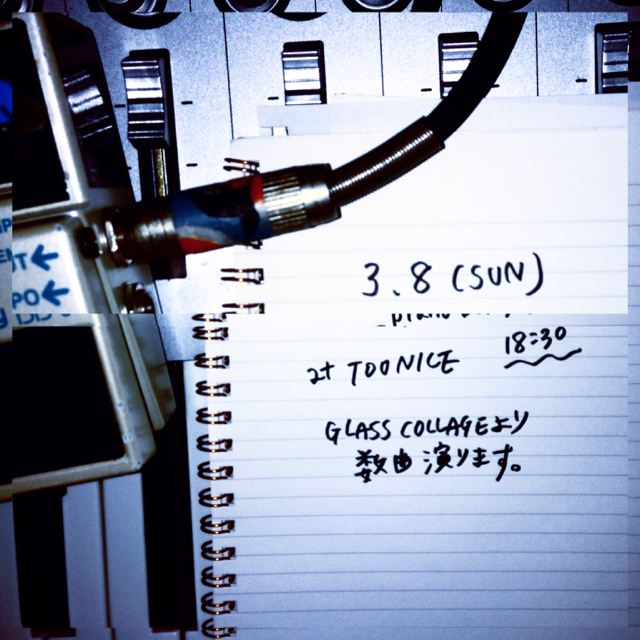 NT←
PO←
3.8 (SUN)
18:30
at TOONICE
GLASS COLLAGEより
数曲演ります。